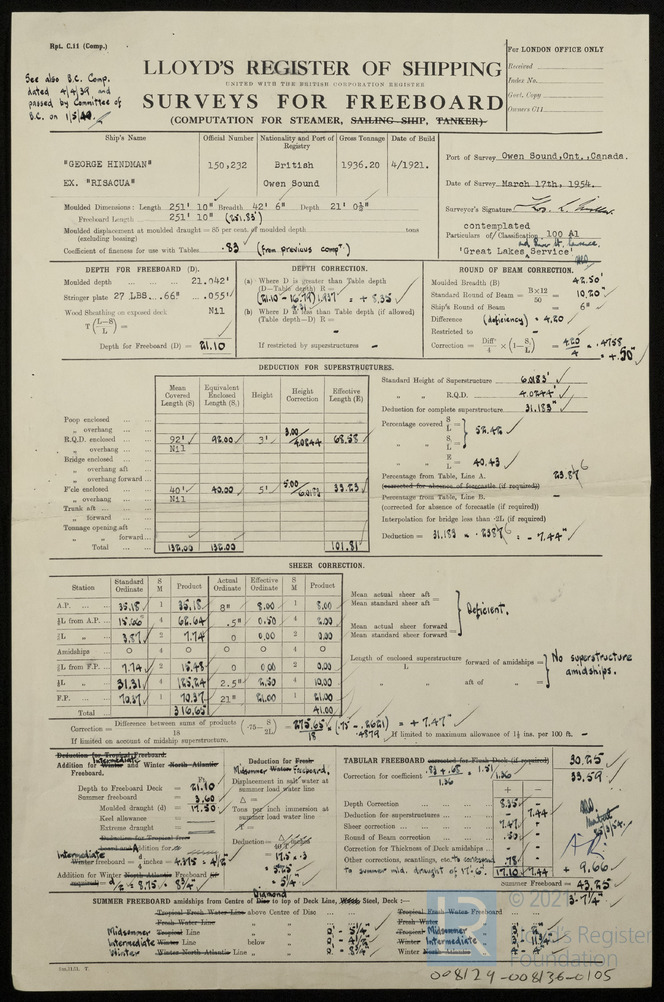 Rpt. C.11 (Comp.)
See also B.C. Comp.
dated 4/4/39 and
passed by Committee of
B.C. on 1/5/40.
For LONDON OFFICE ONLY
Received
Index No.
Govt. Copy
Owners C11
LLOYD'S REGISTER OF SHIPPING
UNITED WITH THE BRITISH CORPORATION REGISTER
SURVEYS FOR FREEBOARD
(COMPUTATION FOR STEAMER, SAILING SHIP, TANKER)
Ship's Name Official Number Nationality and Port of Registry Gross Tonnage Date of Build
"GEORGE HINDMAN" 150,232 British 1936.20 4/1921.
EX. "RISACUA" Owen Sound
Port of Survey Owen Sound, Ont., Canada.
Date of Survey March 17th, 1954.
Surveyor's Signature
contemplated
Particulars of Classification 100 A1
'Great Lakes Service'
Moulded Dimensions: Length 251' 10" Breadth 42' 6" Depth 21' 0½"
Freeboard Length 251' 10" (251.83')
Moulded displacement at moulded draught = 85 per cent. of moulded depth tons
(excluding bossing)
Coefficient of fineness for use with Tables .83 (from previous comp.)
DEPTH FOR FREEBOARD (D).
Moulded depth 21.042'
Stringer plate 27 LBS...66" .055'
Wood Sheathing on exposed deck Nil
T(L-S/L) =
Depth for Freeboard (D) = 21.10
DEPTH CORRECTION.
(a) Where D is greater than Table depth
(D-Table depth) R =
(21.10 - 16.79) 1.937 = + 8.35
4.31
(b) Where D is less than Table depth (if allowed)
(Table depth-D) R = -
If restricted by superstructures -
ROUND OF BEAM CORRECTION.
Moulded Breadth (B) 42.50'
Standard Round of Beam = B×12/50 = 10.20"
Ship's Round of Beam = 6"
Difference (deficiency) = 4.20
Restricted to -
Correction = Diff/4 × (1-S₁/L) = 4.20/4 × .4758
= +.50"
DEDUCTION FOR SUPERSTRUCTURES.
Mean Covered Length (S) Equivalent Enclosed Length (S₁) Height Height Correction Effective Length (E)
Poop enclosed
„ overhang
R.Q.D. enclosed 92' 92.00 3' 3.00/4.0244 68.58
„ overhang Nil
Bridge enclosed
„ overhang aft
„ overhang forward
F'cle enclosed 40' 40.00 5' 5.00/6.0173 33.23
„ overhang Nil
Trunk aft
„ forward
Tonnage opening aft
„ „ forward
Total 132.00 132.00 101.81
Standard Height of Superstructure 6.0183'
„ „ R.Q.D. 4.0244'
Deduction for complete superstructure 31.183"
Percentage covered S/L =
„ S₁/L = 52.42
„ E/L = 40.43
Percentage from Table, Line A. 23.876
(corrected for absence of forecastle (if required))
Percentage from Table, Line B. -
(corrected for absence of forecastle (if required))
Interpolation for bridge less than ·2L (if required)
Deduction = 31.183 × .2387 = - 7.44"
SHEER CORRECTION.
Station Standard Ordinate S M Product Actual Ordinate Effective Ordinate S M Product
A.P. 35.18 1 35.18 8" 8.00 1 8.00
⅙L from A.P. 15.66 4 62.64 .5" 0.50 4 2.00
⅓L „ 3.87 2 7.74 0 0.00 2 0.00
Amidships 0 4 0 0 0 4 0
⅓L from F.P. 7.74 2 15.48 0 0.00 2 0.00
⅙L „ 31.31 4 125.24 2.5" 2.50 4 10.00
F.P. 70.37 1 70.37 21" 21.00 1 21.00
Total 316.65 41.00
Mean actual sheer aft
Mean standard sheer aft =
Mean actual sheer forward
Mean standard sheer forward =
Deficient.
Length of enclosed superstructure forward of amidships =
L
„ aft of „ =
No superstructure amidships.
Correction = Difference between sums of products/18 (·75-S/2L) = 275.65/18 × (.75 - .2621) = + 7.47"
.4879
If limited on account of midship superstructure. If limited to maximum allowance of 1½ ins. per 100 ft. -
Deduction for Tropical Freeboard.
Intermediate
Addition for Winter and Winter North Atlantic
Freeboard.
Ft.
Depth to Freeboard Deck = 21.10
Summer freeboard = 3.60
Moulded draught (d) = 17.50
Keel allowance =
Extreme draught =
Deduction for Tropical free-
board and Addition for
Intermediate
Winter freeboard = d/4 inches = 4.375 = 4½"
Addition for Winter North Atlantic Freeboard (if
required) = d/2 = 8.75 = 8¾"
Deduction for Fresh
Midsummer Water Freeboard.
Displacement in salt water at
summer load water line
Δ =
Tons per inch immersion at
summer load water line
T =
Deduction =
= 17.5 × .3
= 5.25
= 5¼"
TABULAR FREEBOARD corrected for Flush Deck (if required) 30.25
Correction for coefficient .83 + .68/1.36 = 1.51/1.36 33.59
+ -
Depth Correction 8.35 -
Deduction for superstructures - 7.44
Sheer correction 7.47 -
Round of Beam correction .50 -
Correction for Thickness of Deck amidships - -
Other corrections, scantlings, etc. to correspond
to summer mld. draught of 17-6". .78 -
17.10 7.44
+ 9.66
Summer Freeboard = 43.25
3'-7¼"
Diamond
SUMMER FREEBOARD amidships from Centre of Disc to top of Deck Line, Wood Steel, Deck:—
Tropical Fresh Water Line above Centre of Disc
Fresh Water Line „ „
Midsummer Tropical Line „ „ 0' - 5¼"
Intermediate Winter Line below „ 0' - 4½"
Winter Winter North Atlantic Line „ „ 0' - 8¾"
Tropical Fresh Water Freeboard
Fresh Water „
Tropical Midsummer „
Winter Intermediate „ 3' - 11¾"
Winter North Atlantic „ 4' - 4"
© 2021
Lloyd's Register
Foundation
008129-008136-0105